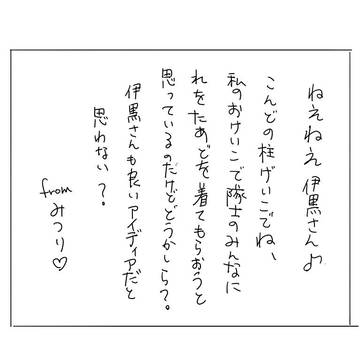 ねえねえ伊黒さん♪
こんどの柱げいこでね、
私のおけいこで隊士のみんなに
れをたあどを着てもらおうと
思っているのだけどどうかしら?。
伊黒さんも良いアイディアだと
思わない?。
from みつり♡